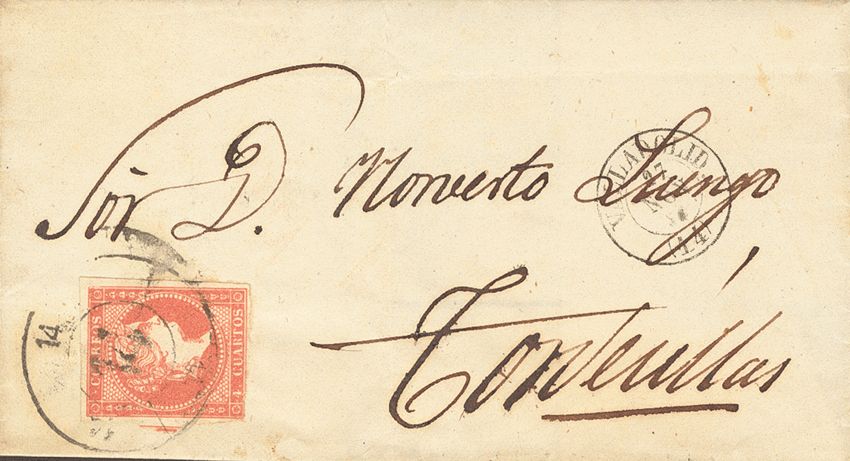 Sor D. Norverto Luengo
Tordesillas
VALLADOLID
27
(14)
CORREOS
4 CUARTOS
14